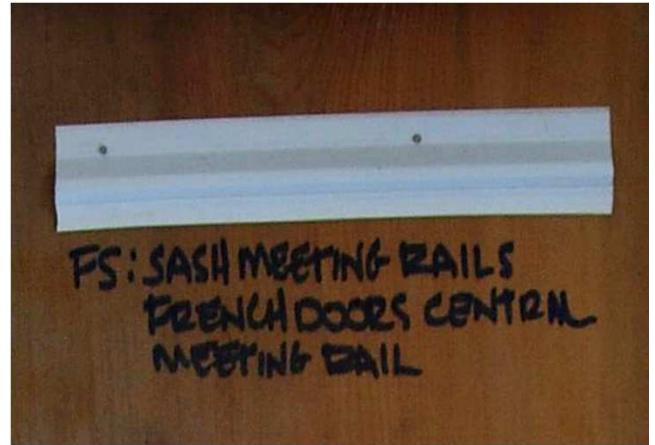 FS: SASH MEETING RAILS
FRENCH DOORS CENTRAL
MEETING RAIL